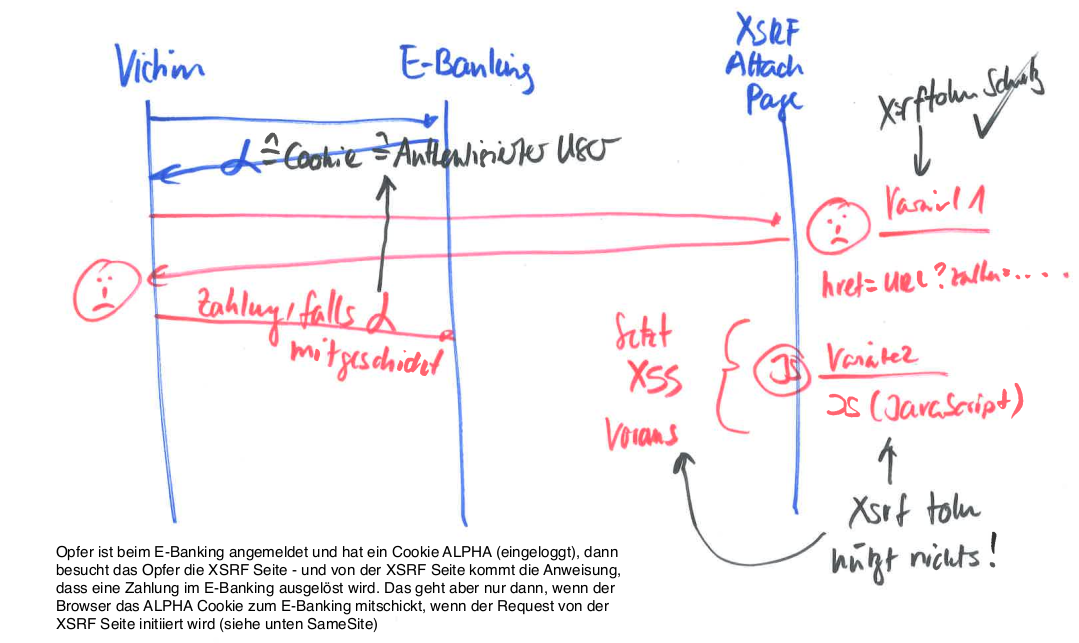 Victim
E-Banking
XSRF
Attack
Page
Xsrf token Schutz
α ≙ Cookie ≙ Authentisierter User
Variante 1
href=URL?zahlen=.....
Zahlung, falls α
mitgeschickt
Setzt
XSS
Voraus
JS
Variante 2
JS (JavaScript)
Xsrf token
nützt nichts!
Opfer ist beim E-Banking angemeldet und hat ein Cookie ALPHA (eingeloggt), dann
besucht das Opfer die XSRF Seite - und von der XSRF Seite kommt die Anweisung,
dass eine Zahlung im E-Banking ausgelöst wird. Das geht aber nur dann, wenn der
Browser das ALPHA Cookie zum E-Banking mitschickt, wenn der Request von der
XSRF Seite initiiert wird (siehe unten SameSite)